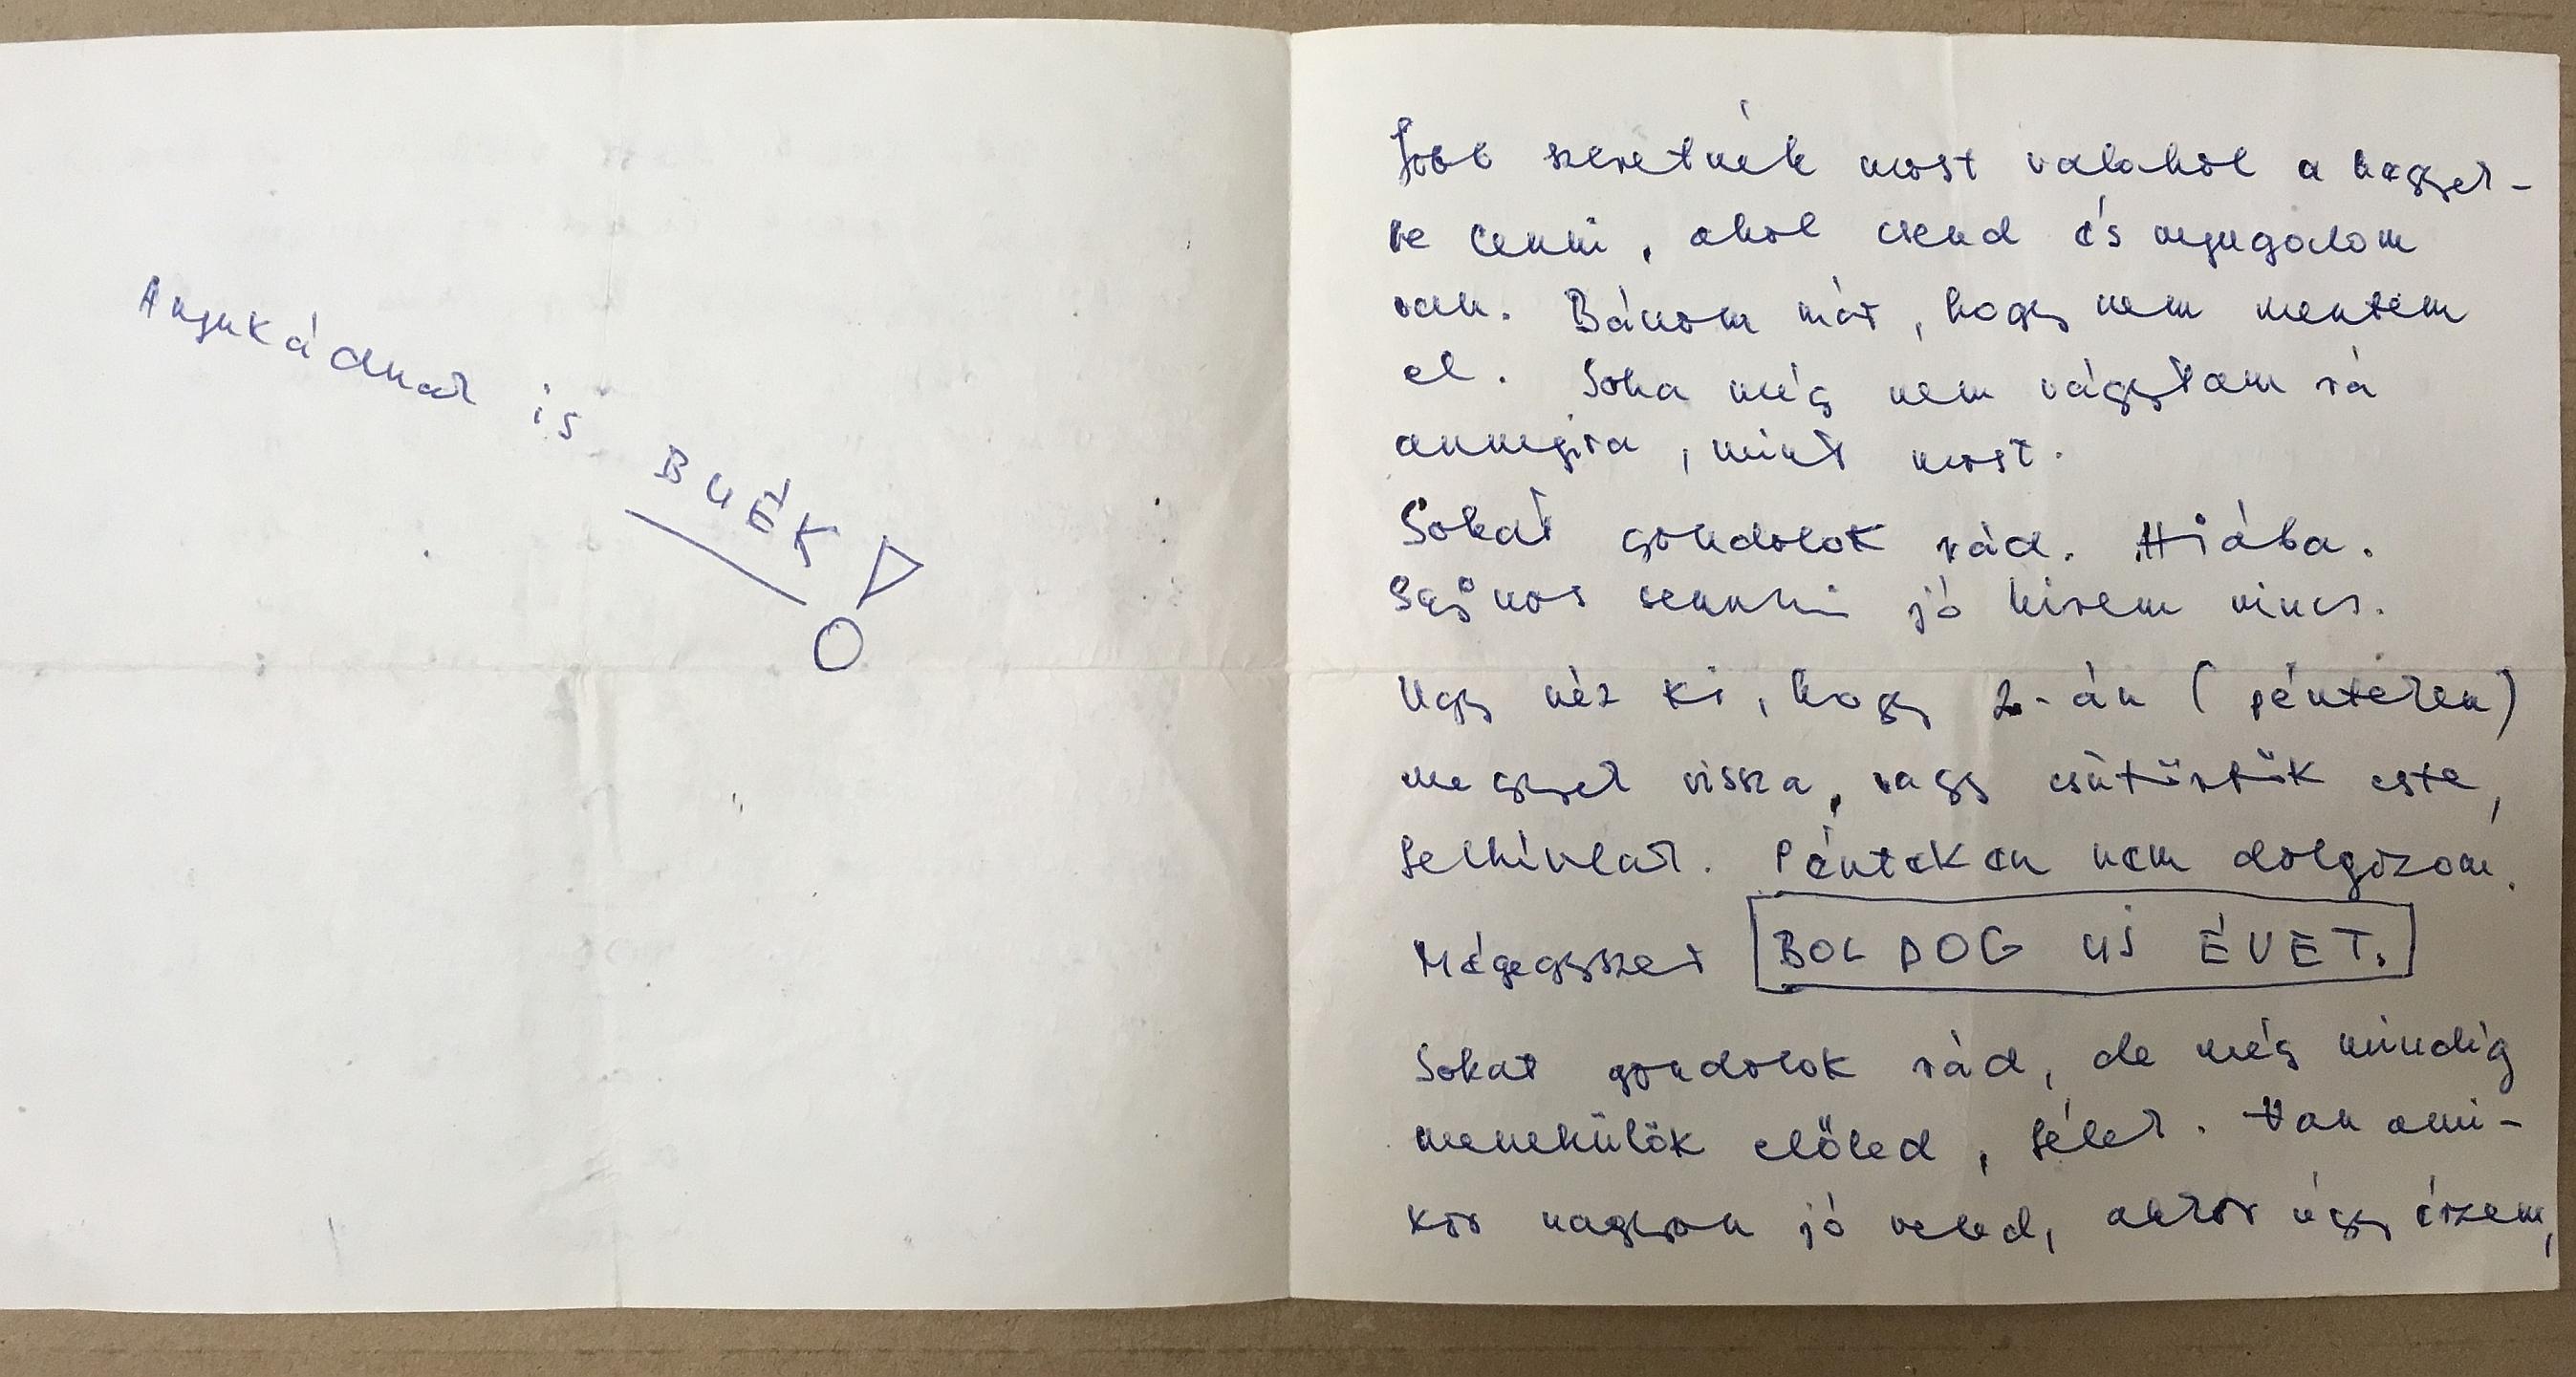 Anyukádnak is BUÉK!
Jobb szeretnék most valahol a hegyek-
be lenni, ahol csend és nyugalom
van. Bánom már, hogy nem mentem
el. Soha még nem vágytam rá
annyira, mint most.
Sokat gondolok rád. Hiába.
Sajnos semmi jó hirem nincs.
Ugy néz ki, hogy 2-án (pénteken)
megyek vissza, vagy csütörtök este,
felhívlak. Pénteken nem dolgozom.
Mégegyszer BOLDOG UJ ÉVET.
Sokat gondolok rád, de még mindig
menekülök előled, félek. Van ami-
kor nagyon jó veled, akkor úgy érzem,